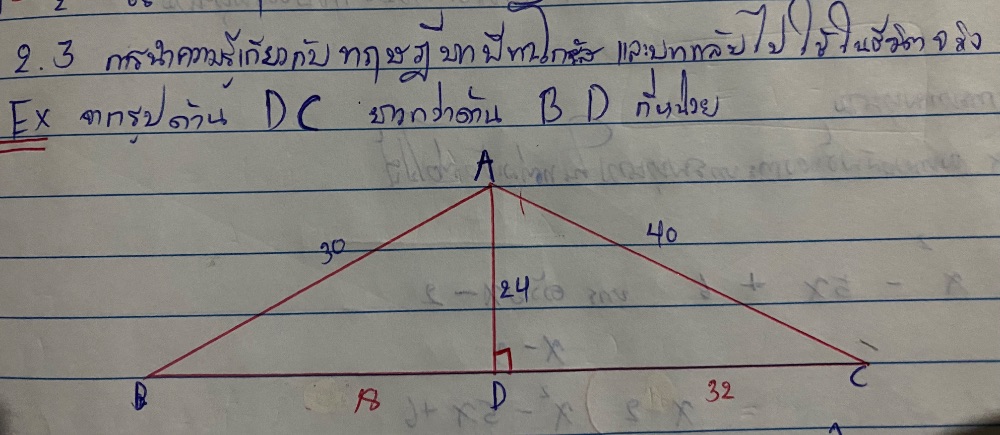 2.3 การนำความรู้เกี่ยวกับทฤษฎีบทพีทาโกรัส และบทกลับไปใช้ในชีวิตจริง
Ex จากรูปด้าน DC ยาวกว่าด้าน BD กี่หน่วย
A
30
40
24
B
18
D
32
C